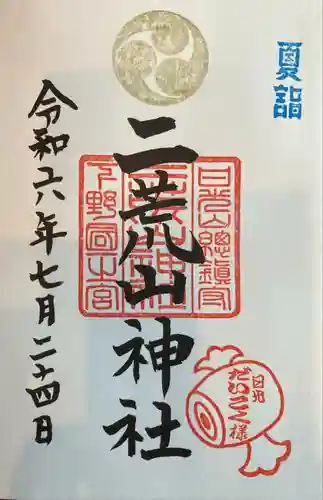 夏詣
二荒山神社
日光山總鎮守
二荒山神社
下野國一宮
日光
だいこく様
令和六年七月二十四日